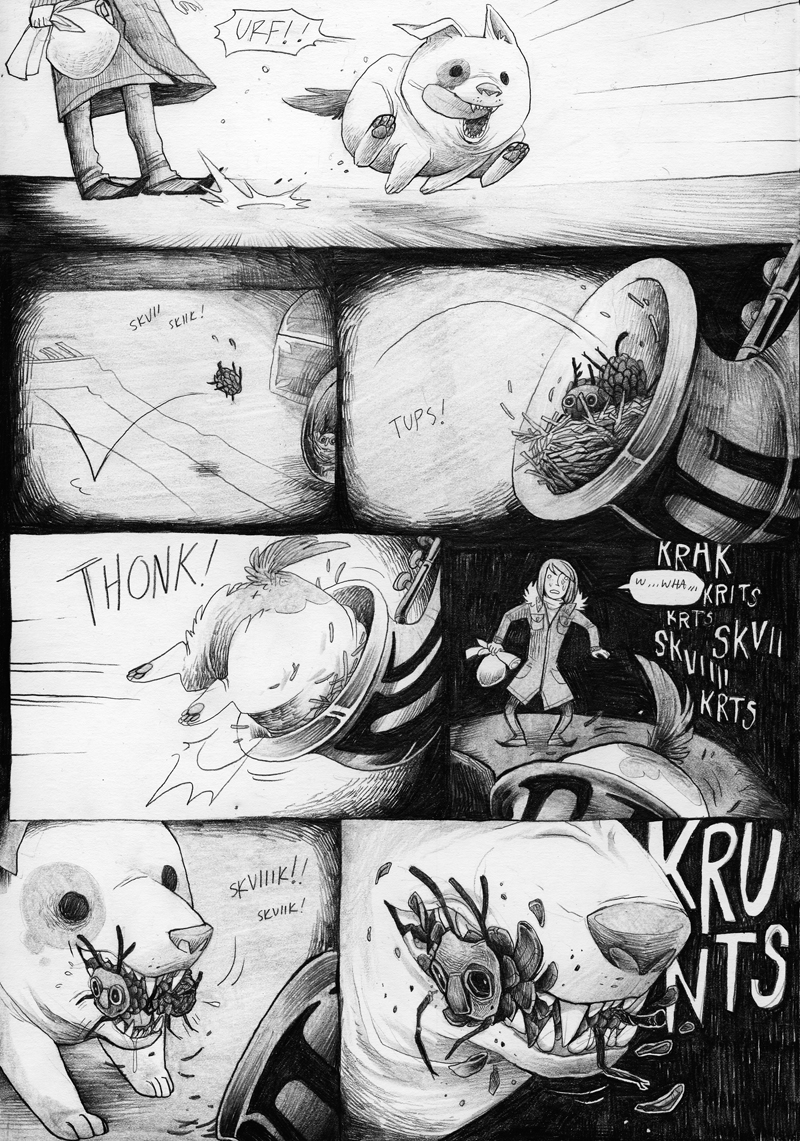 URF!!
SKVII
SKIIK!
TUPS!
THONK!
KRAK
W...WHA...
KRITS
KRTS
SKVII
SKVIIII
KRTS
SKVIIIK!!
SKVIIK!
KRU
NTS